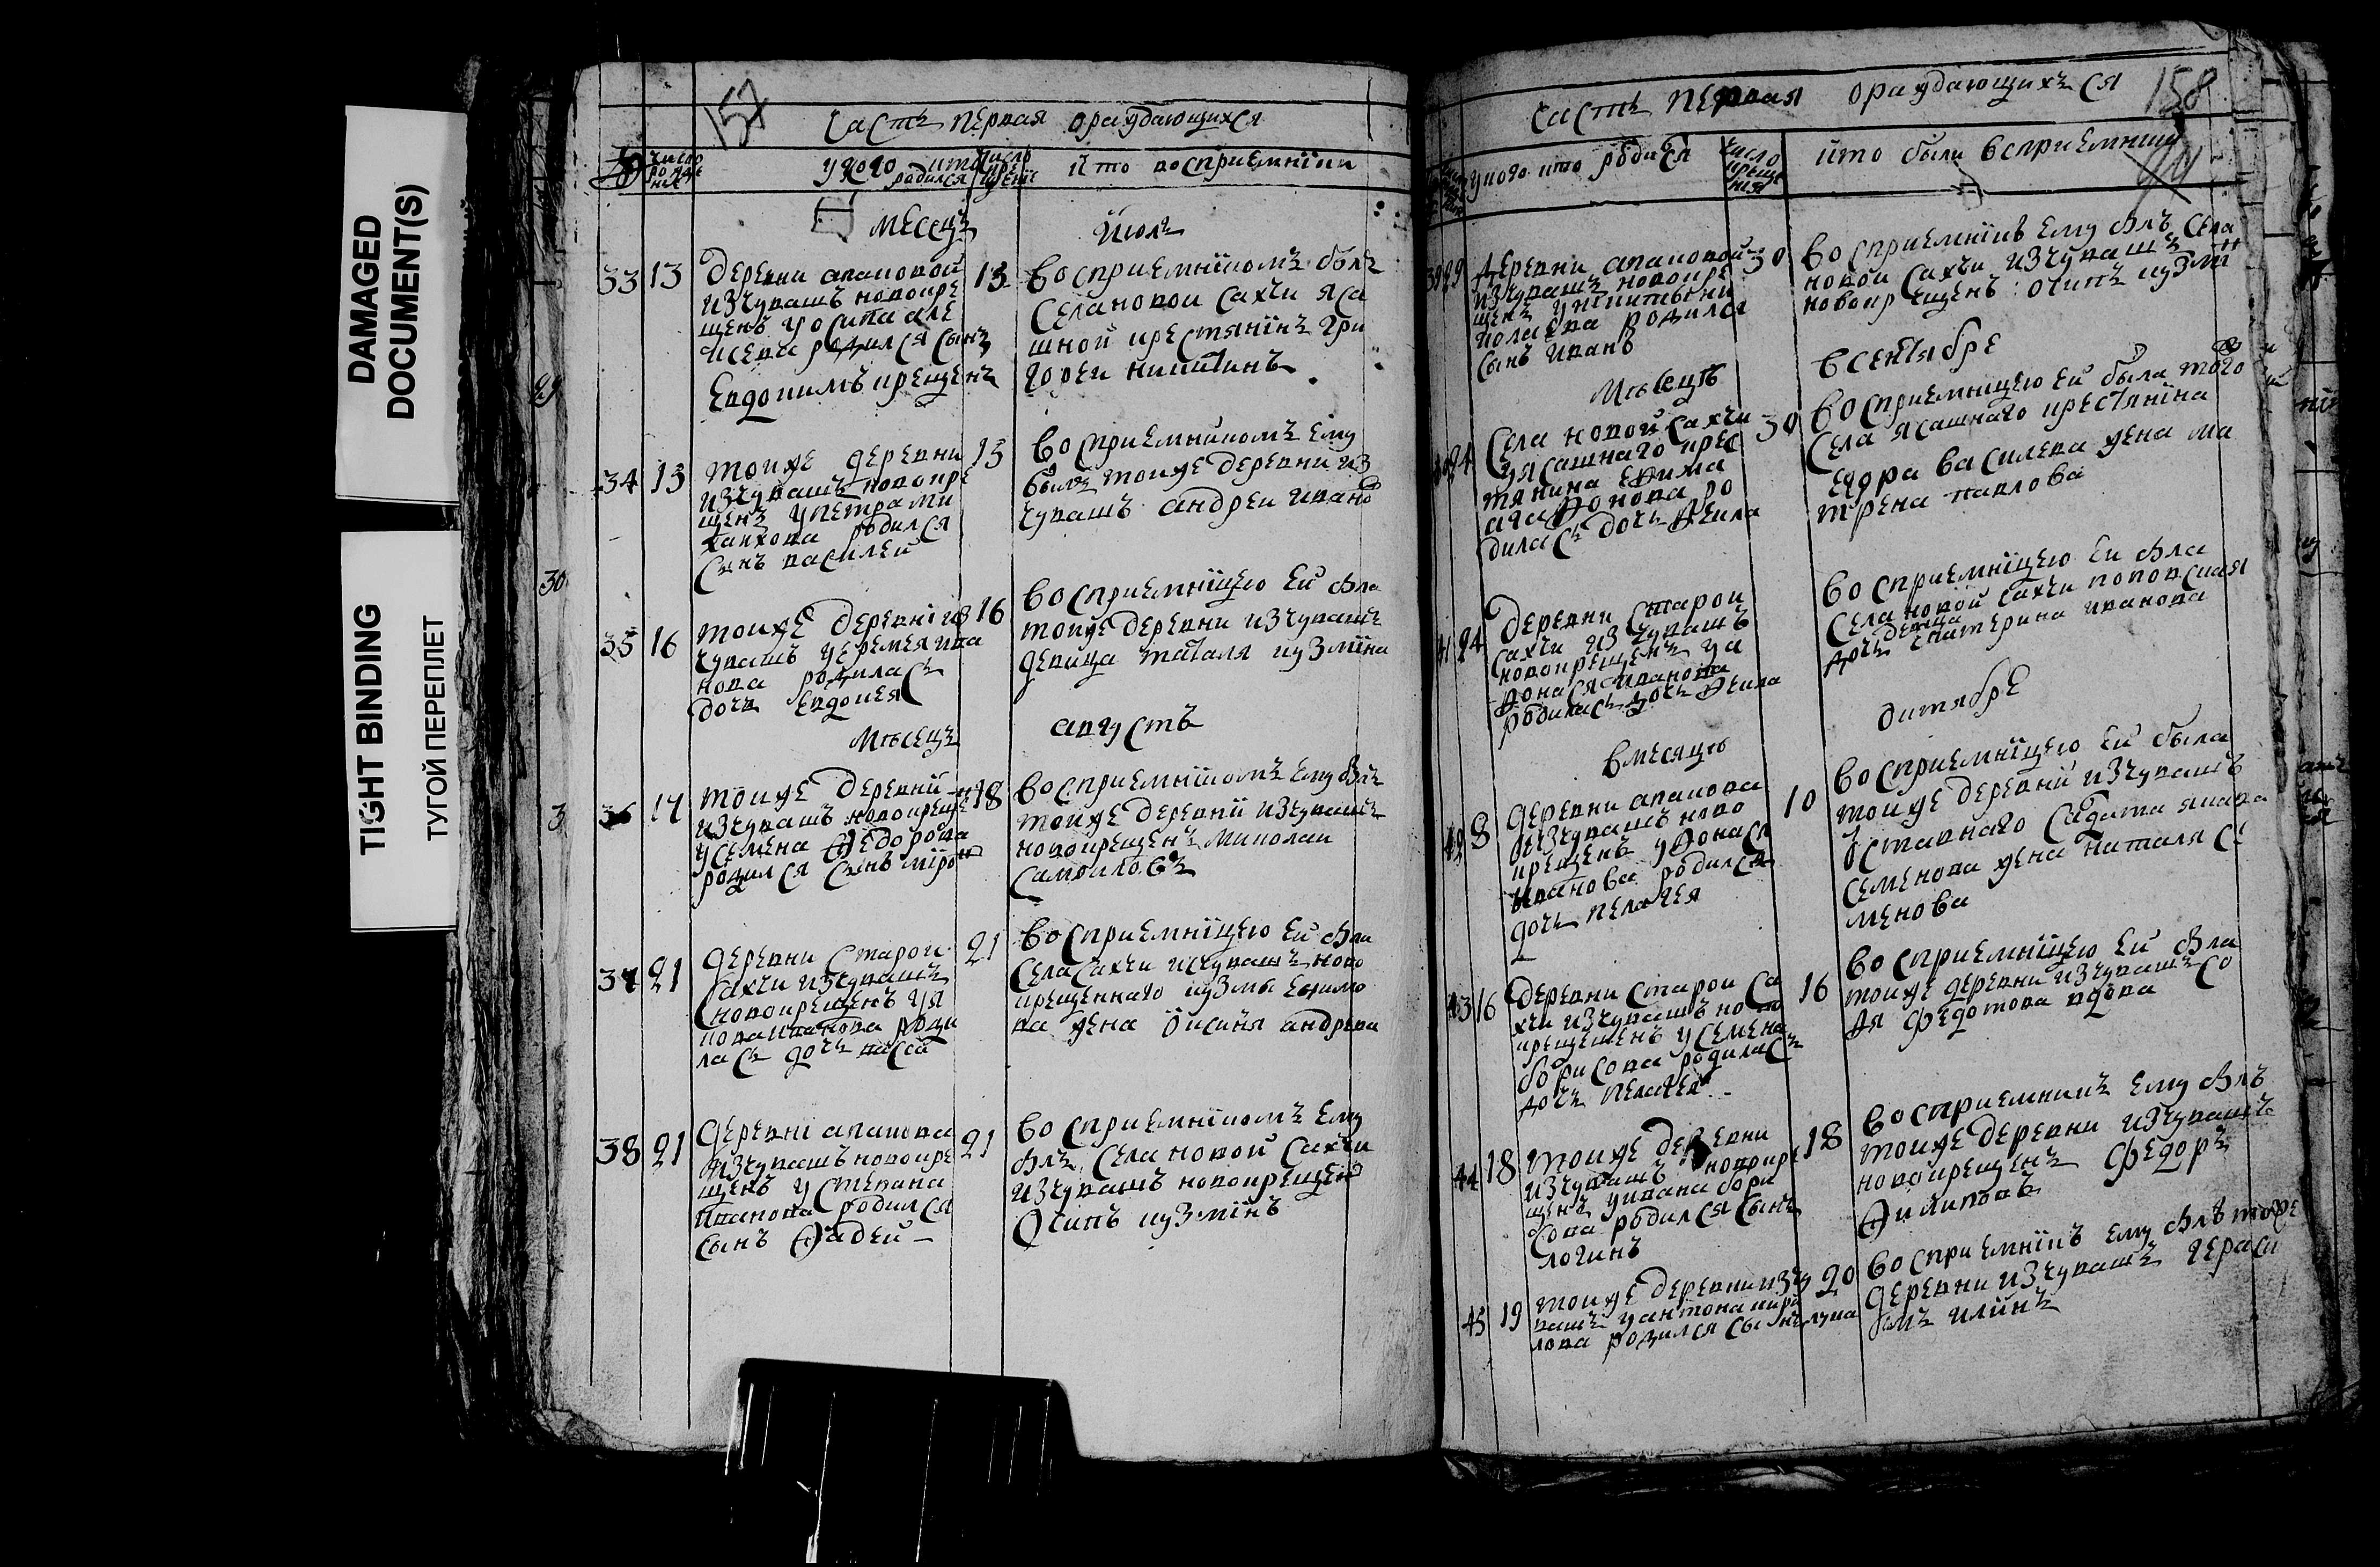 DAMAGED
DOCUMENT(S)
TIGHT BINDING
ТУГОЙ ПЕРЕПЛЕТ
29
30
3
157
Часть первая о раждающихся
число рожде ния
у кого кто родился
число креще
кто восприемники
Месецъ Июль
33 13
деревни апаковой
изчувашъ новокре
щенъ у осипа але
ксеева родился сынъ
Евдокимъ крещенъ
13
восприемникомъ былъ
Села новои Сахчи яса
шной крестянинъ Гри
гореи никитинъ
34 13
тоижѐ деревни
изчувашъ новокре
щенъ у петра ми
хаихова родился
Сынъ василеи
13
восприемникомъ ему
былъ тоиже деревни из
чувашъ андреи ивано
35 16
тоиже деревни из
чувашъ у еремея ива
нова родилась
дочь Евдокея
16
восприемницею еи была
тоиже деревни изчувашъ
девица наталя кузмина
Мѣсецъ августъ
36 17
тоиже деревни
изчувашъ новокреще
у семена Ѳедорова
родился Сынъ миро
18
восприемникомъ ему былъ
тоиже деревни изчувашъ
новокрещенъ Миколаи
Самоиловъ
37 21
деревни Старои
Сахчи изчувашъ
новокрещенъ у я
кова иванова роди
лась дочь васса
21
восприемницею еи была
Села Сахчи исчувашъ ново
крещеннаго кузмы екимо
ва жена оксиня андрева
38 21
деревни апакова
изчувашъ новокре
щенъ у Степана
иванова родился
сынъ Ѳадеи
21
восприемникомъ ему
былъ Села новои Сахчи
изчувашъ новокрещено
Осипъ кузминъ
158
Часть первая о раждающихъся
94
у кого кто родися
число креще ния
кто были восприемники
39 29
деревни апаковои
изчувашъ новокре
щенъ у никиты ни
колаева родился
сынъ иванъ
30
восприемникъ ему былъ Села
новои Сахчи изчувашъ
новокрещенъ осипъ кузми
Мѣсецъ в сентябре
40 24
Села новои Сахчи
у ясашнаго крес
тянина ефима
агаѳонова ро
дилась дочь Ѳекла
30
восприемницею еи была того
Села ясашнаго крестянина
Едора василева жена ма
трена павлова
41 24
деревни Старои
Сахчи из чувашъ
новокрещенъ у а
ѳонася иванова
родилась дочь Ѳекла
восприемницею еи была
Села новои Сахчи поповская
дочь девица
екатерина иванова
в месяцъ октябре
42 8
деревни апакова
изчувашъ ново
крещенъ у Ѳонася
иванова родился
дочь пелагея
10
восприемницею еи была
тоиже деревни изчувашъ
оставнаго Салдата якова
Семенова жена наталя Се
менова
43 16
деревни старои Са
хчи изчувашъ но во
крещенъ у семена
борисова родилась
дочь пелагея
16
восприемницею еи была
тоиже деревни изчувашъ Со
ѳя федотова вдова
44 18
тоиже деревни
изчувашъ новокре
щенъ у ивана бори
сова родился Сынъ
логинъ
18
восприемникъ ему былъ
тоиже деревни изчувашъ
новокрещенъ федоръ
Ѳилиповъ
45 19
тоиже деревни изчу
вашъ у антона кири
лова родился сынъ лука
20
восприемникъ ему былъ тоже
деревни изчувашъ гераси
мъ илинъ